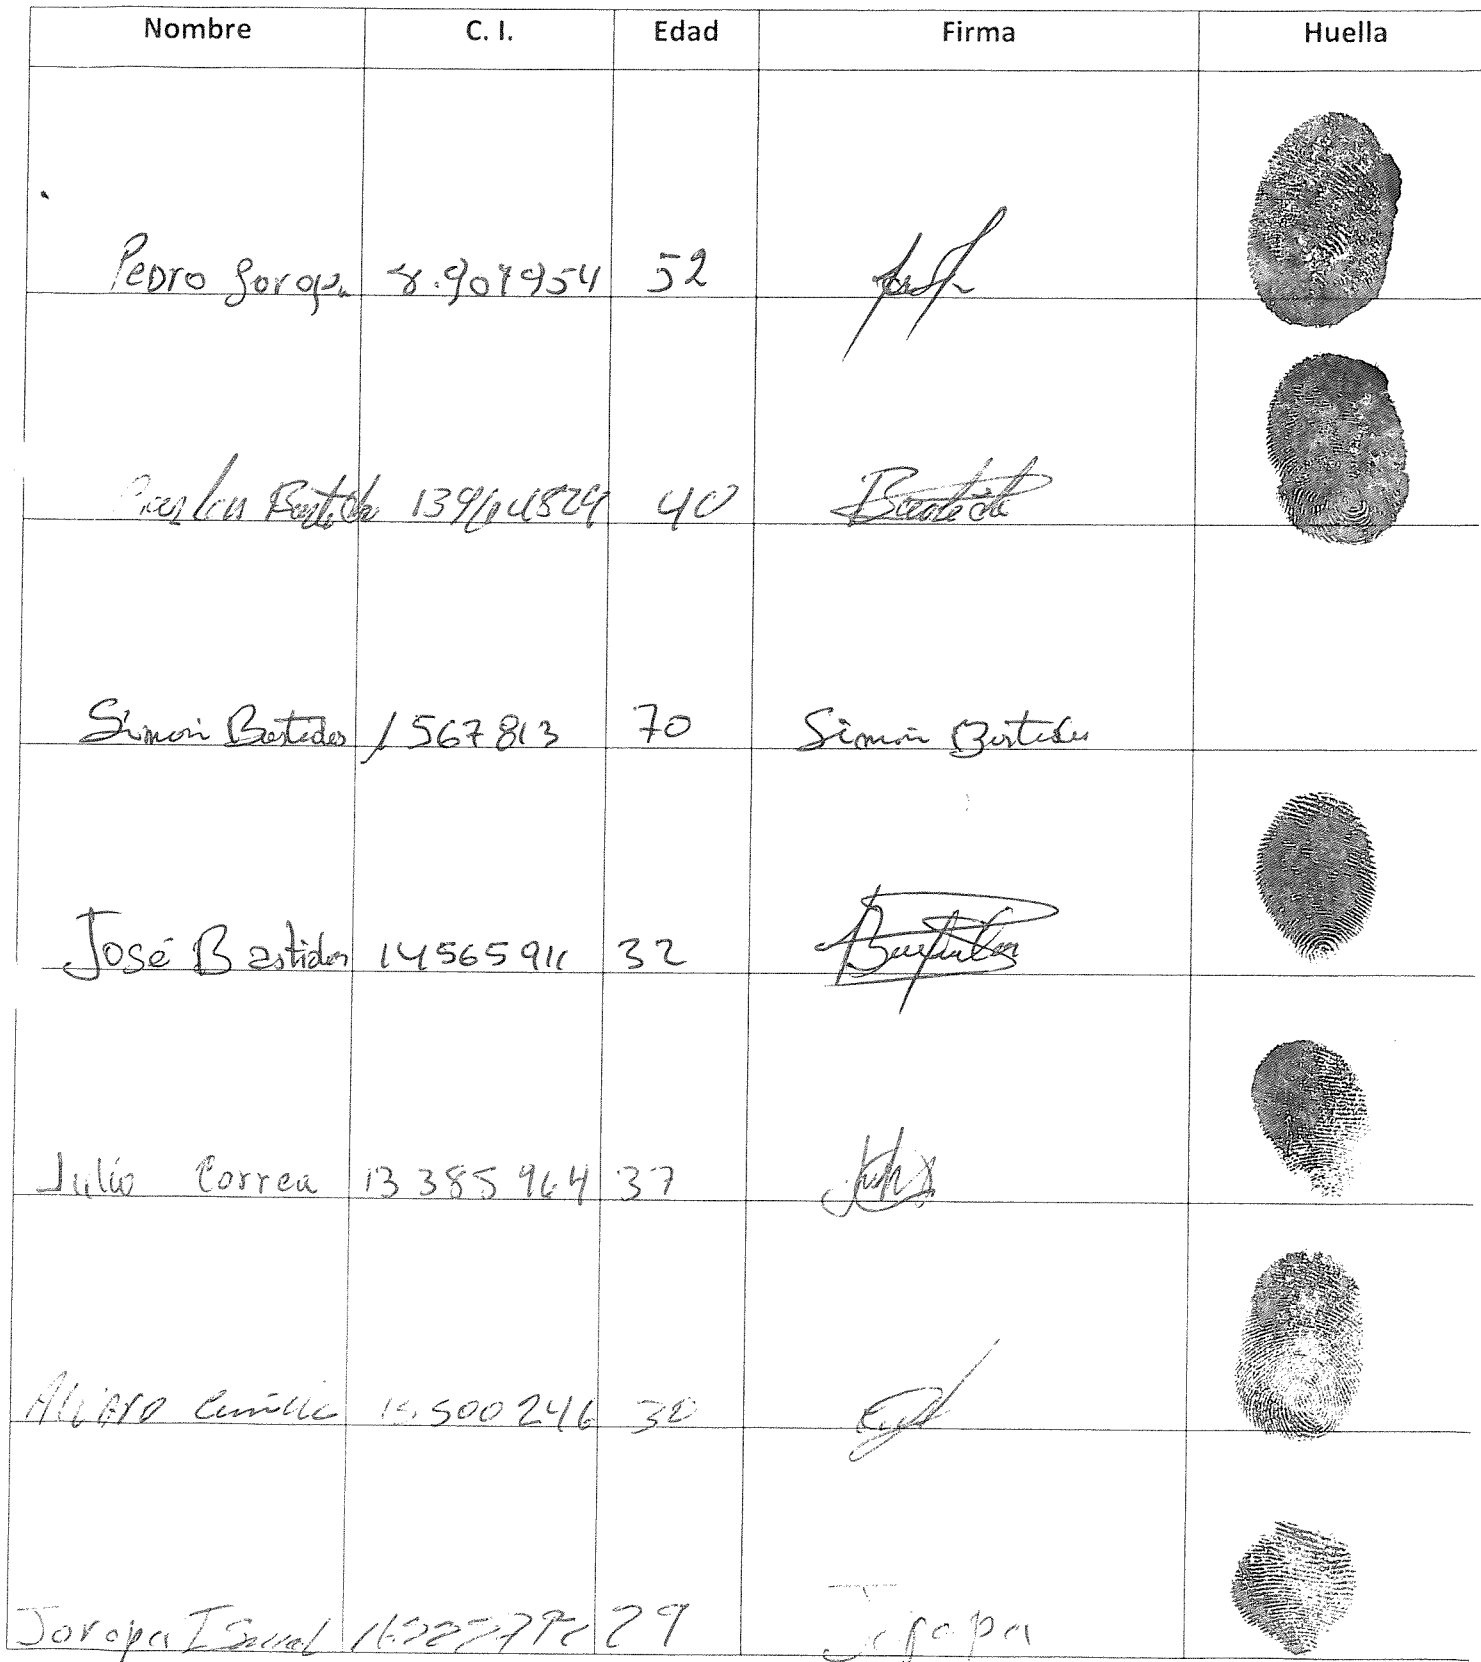 Nombre C. I. Edad Firma Huella
Pedro Joropa 8.901954 52
Carlos Bastidas 13964829 40 Bastidas
Simón Bastidas 1567813 70 Simón Bastidas
José Bastidas 14565911 32 Bastidas
Julio Correa 13385964 37
15.500246 30
Joropa Israel 29 Joropa